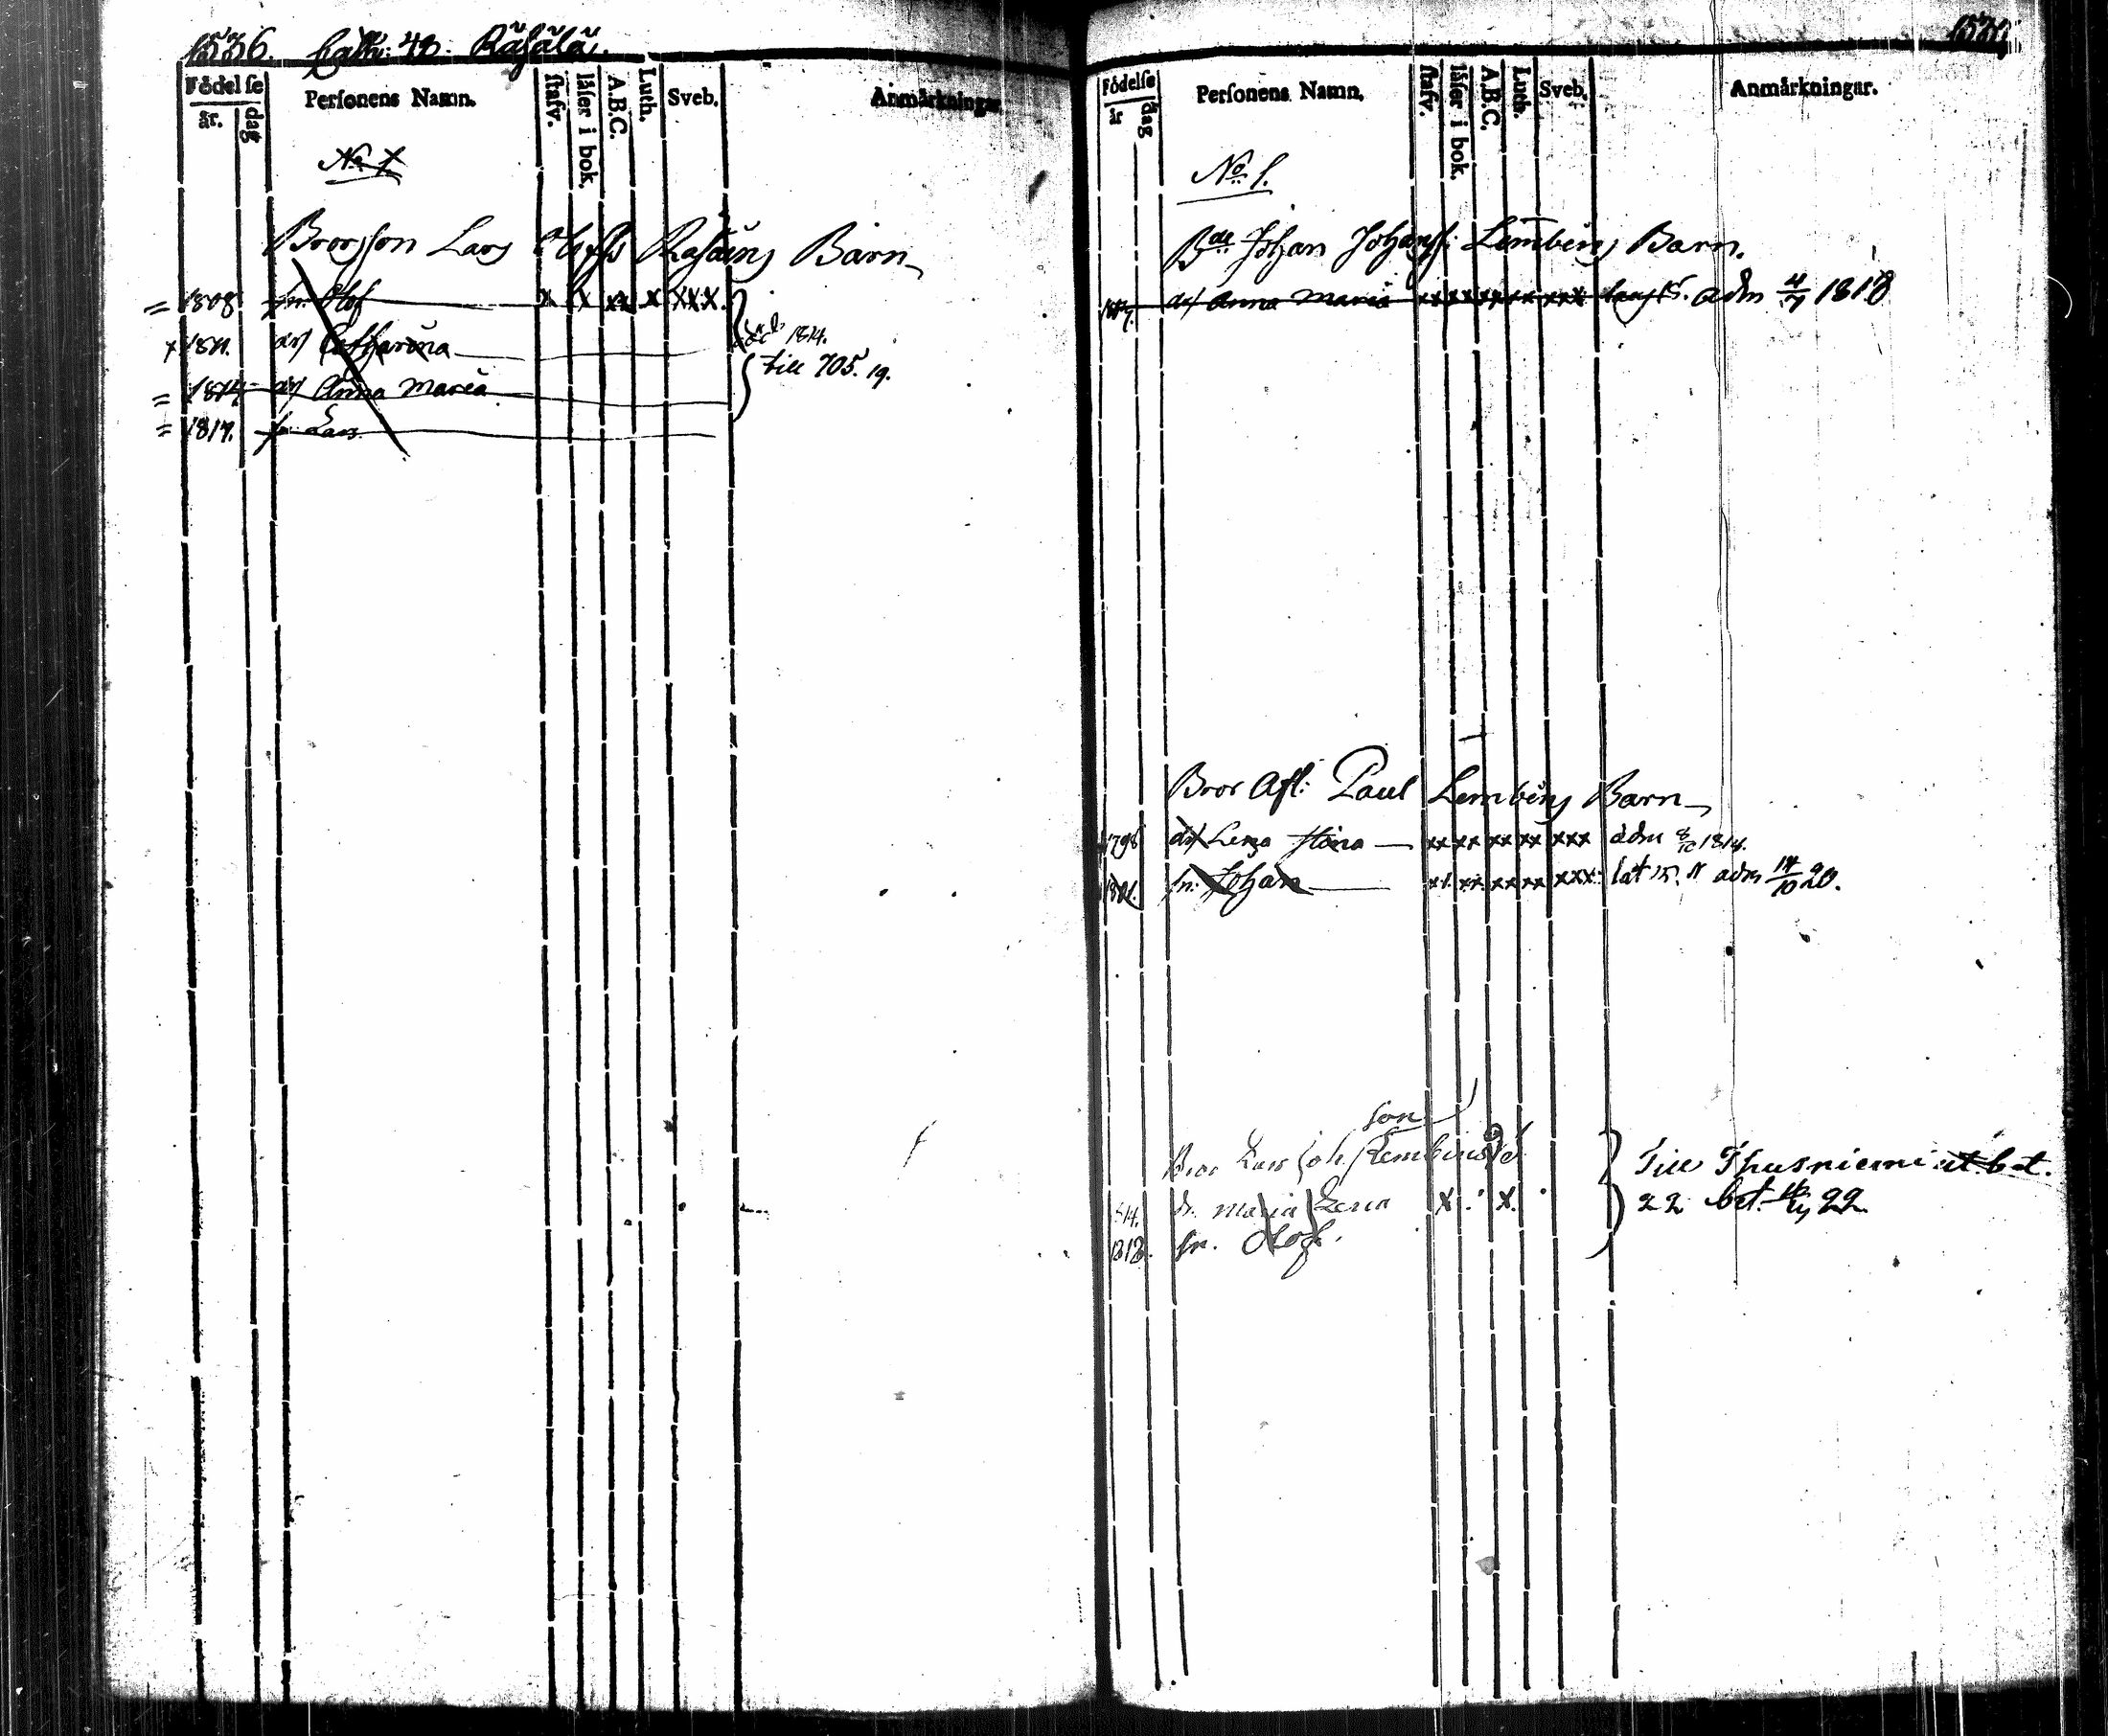 1536. Cath: 48. Räsälä.
Födelse
år. dag
Personens Namn.
stafv.
läser i bok.
A.B.C.
Luth.
Sveb.
Anmärkningar.
No 1.
Brorsson Lars Räsäins Barn
1808 sn. Olof x x xx x xxx.
1811. dr Catharina 1814.
1814 dr Anna Maria till 705. 19.
1817. sn Lars
Födelse
år dag
Personens Namn.
stafv.
läser i bok.
A.B.C.
Luth.
Sveb.
Anmärkningar.
No 1.
Bde Johan Johanss: Lembins Barn.
dr Anna Maria xx xx xx xx xxx adm 4/7 1818
Bror Afl: Paul Lembins Barn
1798 dr Lena Stina xx xx xx xx xxx adm 8/10 1814.
1801. sn: Johan xx xx xx xx xxx adm 14/10 20.
son
Bror Lars Joh Lembins
dr. Maria Lena x x Till Thusniemi ut bet.
1818. sn. Olof. 22 bet. 22